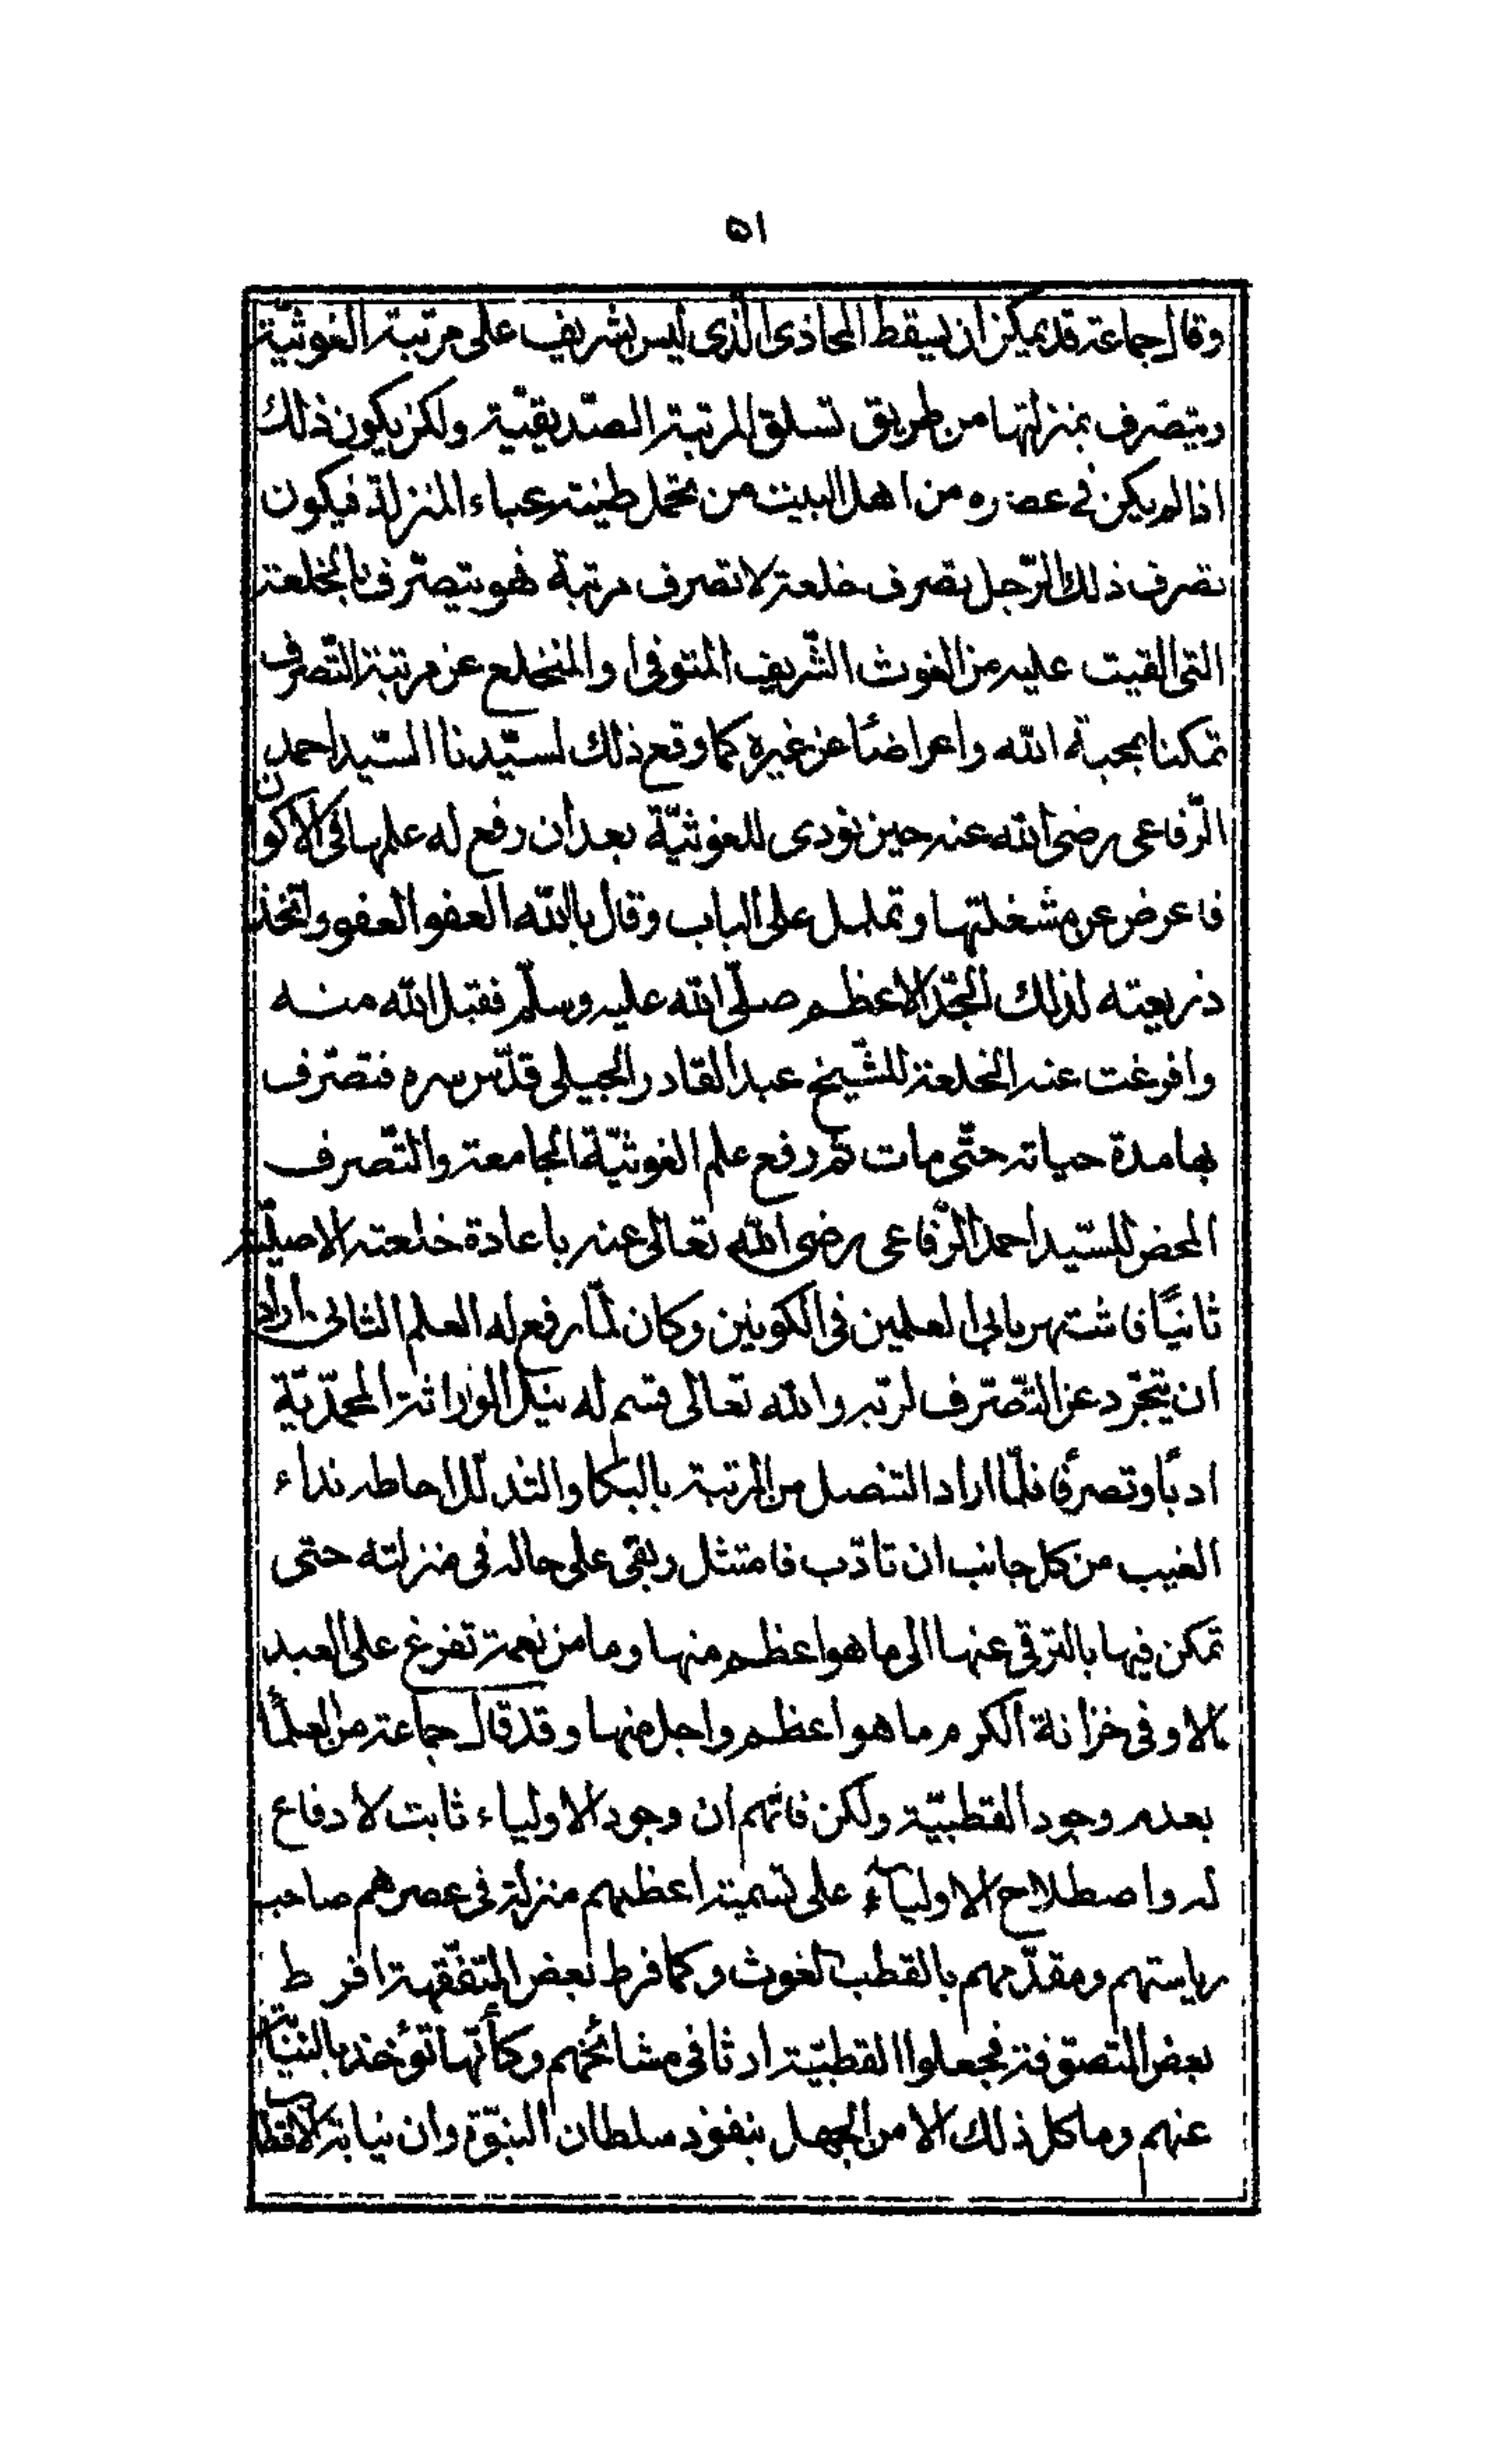 ٥١
وقال جماعة قد يمكن ان يسقط المحاذى الذى ليس بشريف على مرتبة الغوثيّة
ويتصّرف بمنزلتها من طريق تسلق المرتبة الصّديقيّة ولكن يكون ذلك
اذا لم يكن فى عصره من اهل البيت من تحمل طينته عباء المنزلة فيكون
تصرف ذلك الرّجل تصرف خلعة لا تصرف مرتبة فهو يتصرّف بالخلعة
التى القيت عليه من الغوث الشّريف المتوفى او المنخلع عن مرتبة التّصرف
تمكنا بمحبة الله واعراضًا عن غيره كما وقع ذلك لسيّدنا السّيد احمد
الرّفاعى رضى الله عنه حين نودى للغوثيّة بعد أن رفع له علمها فى الاكوان
فاعرض عن مشغلتها وتململ على الباب وقال يا الله العفو العفو واتّخذ
ذريعته لذلك الجدّ الاعظم صلّى الله عليه وسلّم فقبل الله منه
وافرغت عنه الخلعة للشّيخ عبد القادر الجيلى قدّس سره فتصّرف
بها مدة حياته حتّى مات ثم رفع علم الغوثيّة الجامعة والتّصرف
المحض للسّيد احمد الرّفاعى رضى الله تعالى عنه باعادة خلعته الاصليّة
ثانيًا فاشتهر بابى العلمين فى الكونين وكان لمّا رفع له العلم الثانى اراد
ان يتجّرد عن التّصّرف لربه والله تعالى قسم له نيل الوراثة المحمّديّة
ادبًا وتصرفًا فلمّا اراد التنصل من المرتبة بالبكا والتذلل احاطه نداء
الغيب من كل جانب ان تادّب فامتثل وبقى على حاله فى منزلته حتى
تمكن فيها بالترقى عنها الى ما هو اعظم منها وما من نعمة تفرغ على العبد
الا وفى خزانة الكرم ما هو اعظم واجل منها وقد قال جماعة من العلمآ
بعدم وجود القطبيّة ولكن فاتهم ان وجود الاولياء ثابت لا دفاع
له واصطلاح الاوليآء على تسمية اعظمهم منزلة فى عصرهم صاحب
رياستهم ومقدّمهم بالقطب الغوث وكما فرط بعض المتفقّهة افرط
بعض المتصوّفة فجعلوا القطبيّة ارثا فى مشائخهم وكأنّها تؤخذ بالنيّابة
عنهم وما كل ذلك الا من الجهل بنفوذ سلطان النبوّة وان نيابة الاقطاب